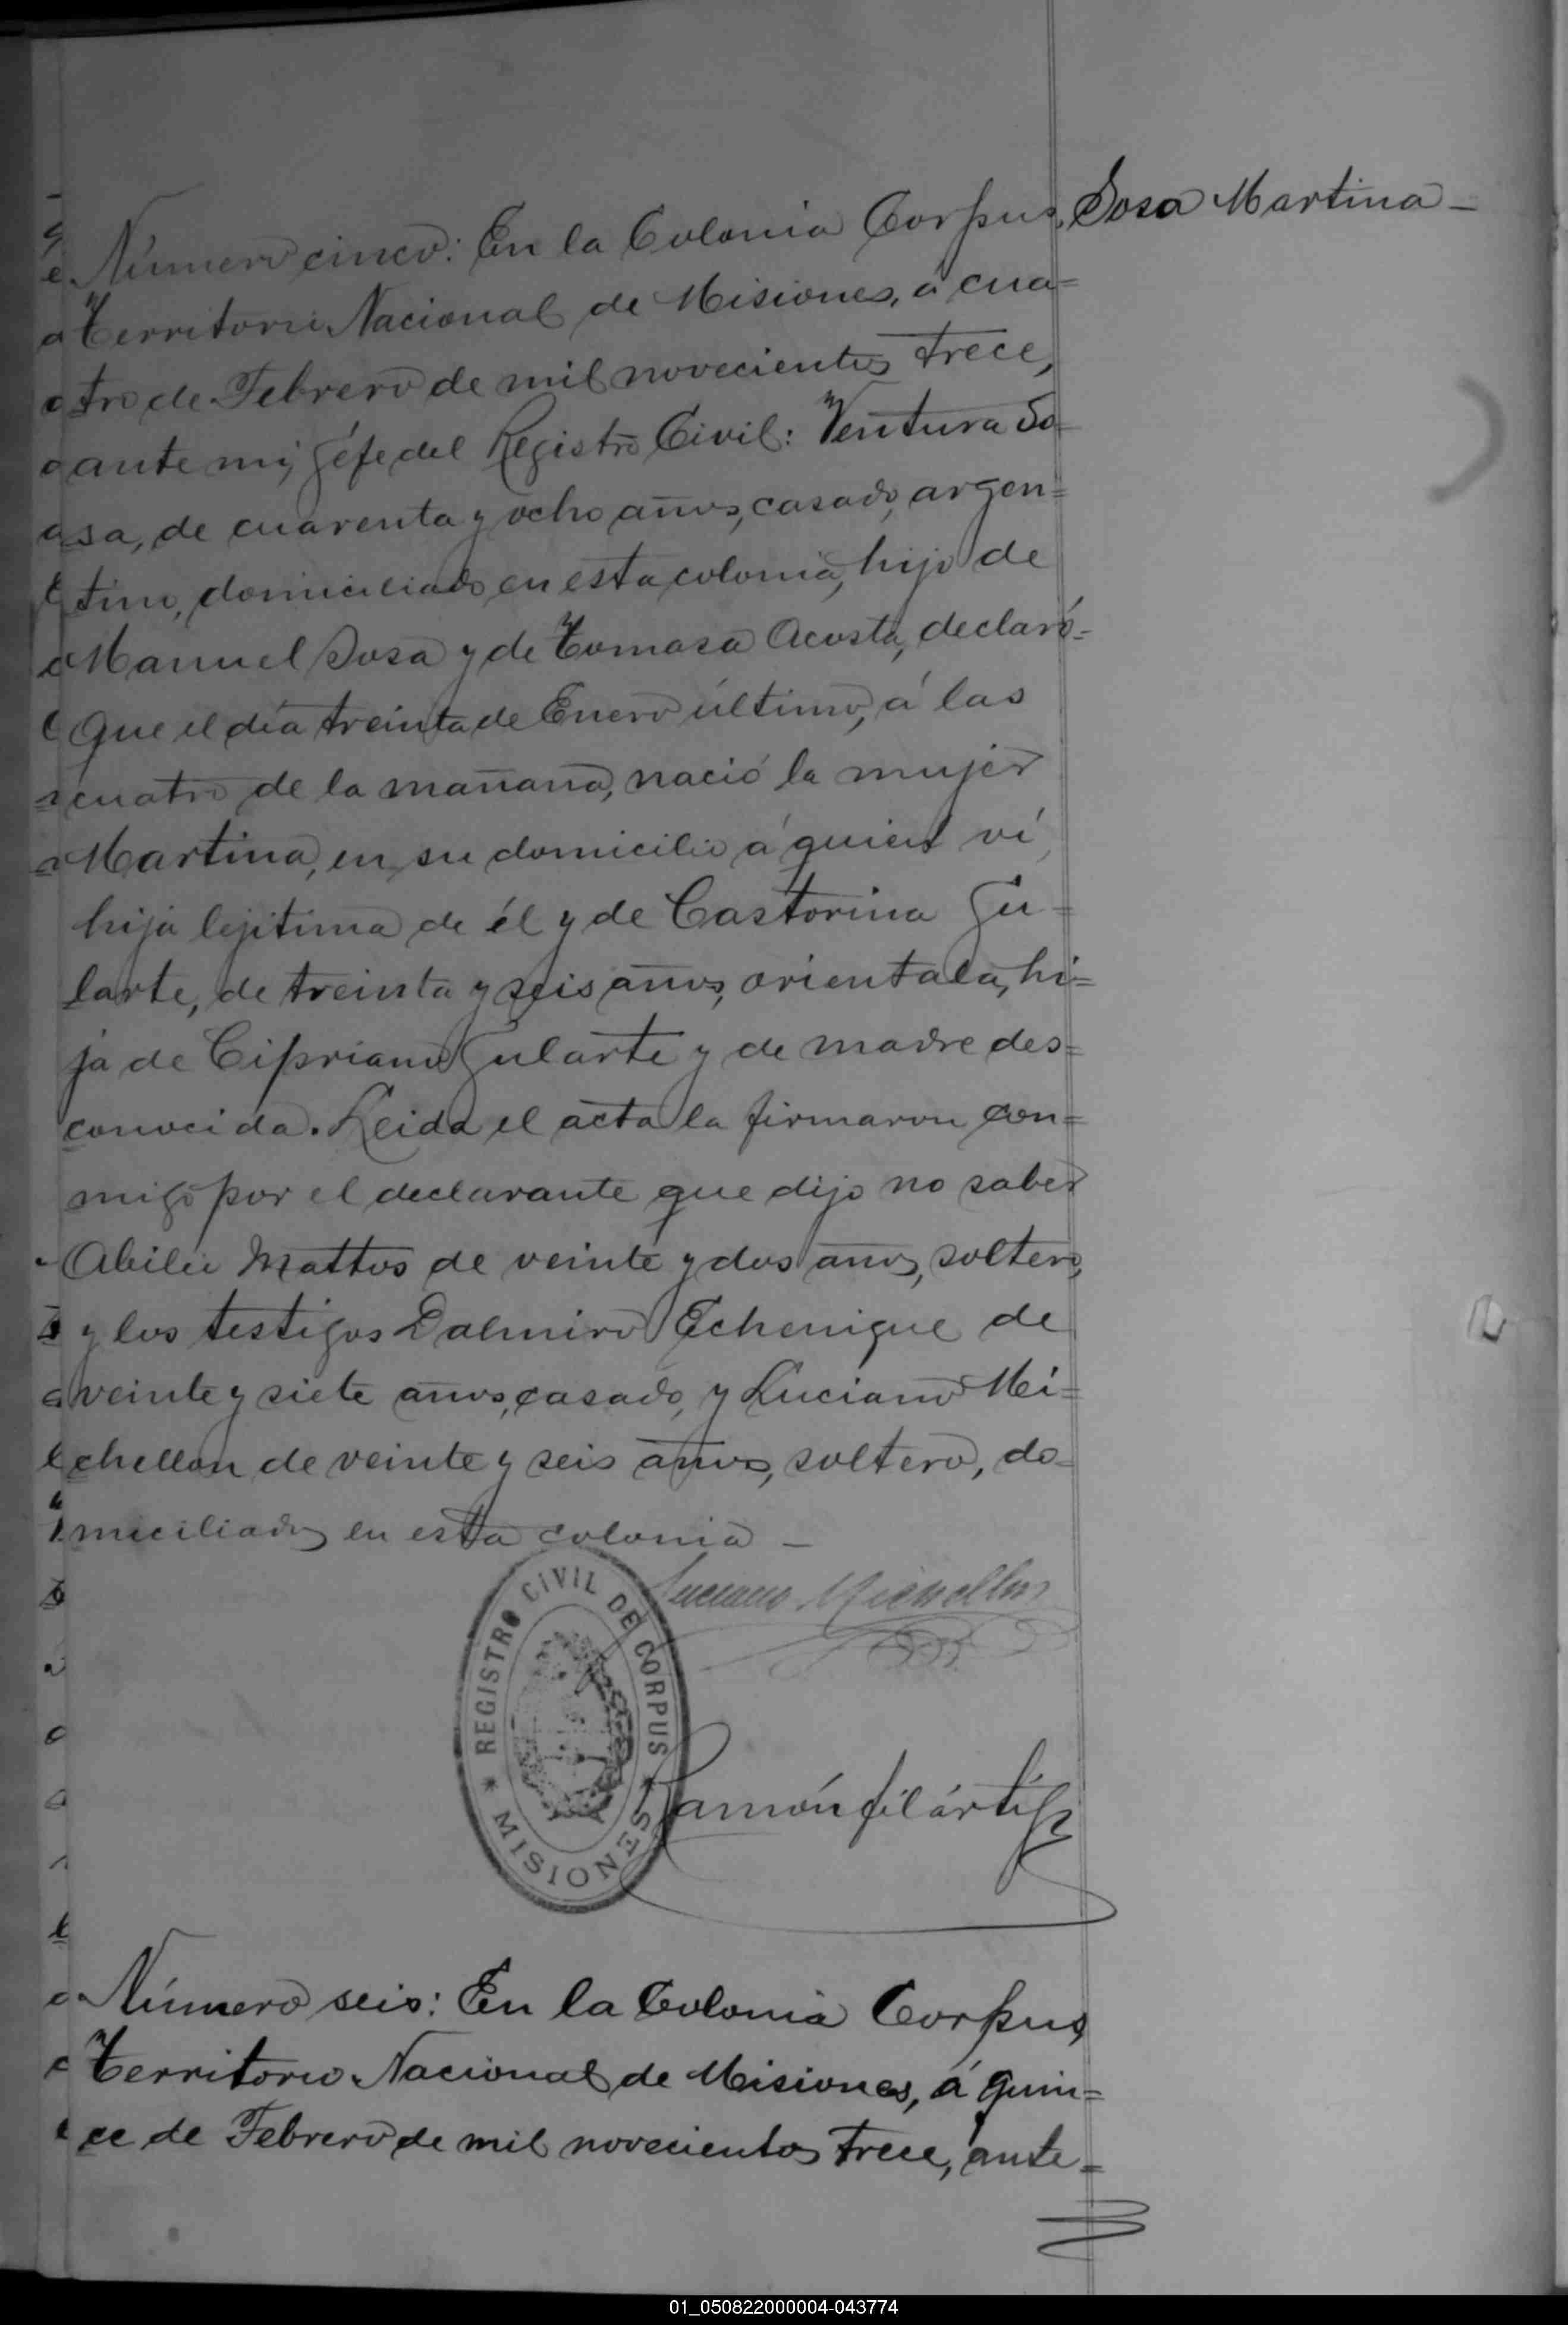 Sosa Martina –
Número cinco: En la Colonia Corpus,
Territorio Nacional de Misiones, á cua=
tro de Febrero de mil novecientos trece,
ante mi, Géfe del Registro Civil: Ventura So=
sa, de cuarenta y ocho años, casado, argen=
tino, domiciliado en esta colonia, hijo de
Manuel Sosa y de Tomasa Acosta, declaró=
Que el día treinta de Enero último, á las
cuatro de la mañana, nació la mujer
Martina, en su domicilio á quien ví,
hija lejitima de él y de Castorina Gu=
larte, de treinta y seis años, orientala, hi=
ja de Cipriano Gularte y de madre des=
conocida. Leida el acta la firmaron con=
migo por el declarante que dijo no saber
Abilio Mattos de veinte y dos años, soltero,
y los testigos Dalmiro Echenique de
veinte y siete años, casado, y Luciano Mi=
chellon de veinte y seis años, soltero, do=
miciliados en esta colonia –
Luciano Michellon
REGISTRO CIVIL DE CORPUS
* MISIONES *
Ramón filártiga
Número seis: En la Colonia Corpus,
Territorio Nacional de Misiones, á quin=
ce de Febrero de mil novecientos trece, ante=
01_050822000004-043774